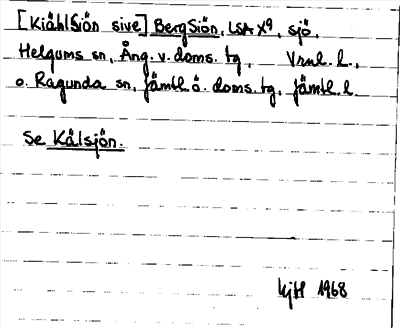 [Kiählsiön sive] BergSiön, LSA X9, sjö,
Helgums sn, Ång. v. doms. tg, Vrnl. l.,
o. Ragunda sn, Jämtl. ö. doms. tg, Jämtl. l.
Se Kälsjön.
KjH 1968